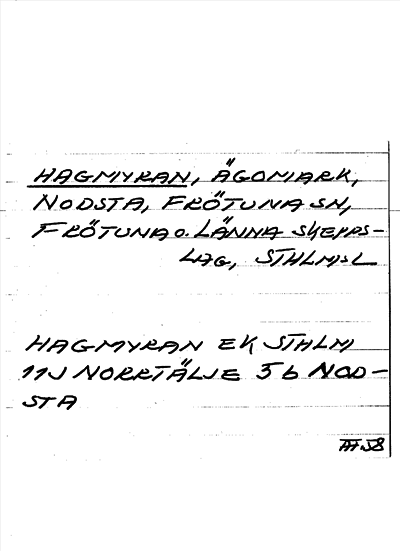 HAGMYRAN, ÄGOMARK,
NODSTA, FRÖTUNA SN,
FRÖTUNA O. LÄNNA SKEPPS-
LAG, STHLMSL
HAGMYRAN EK STHLM
11J NORRTÄLJE 5 b NOD-
STA